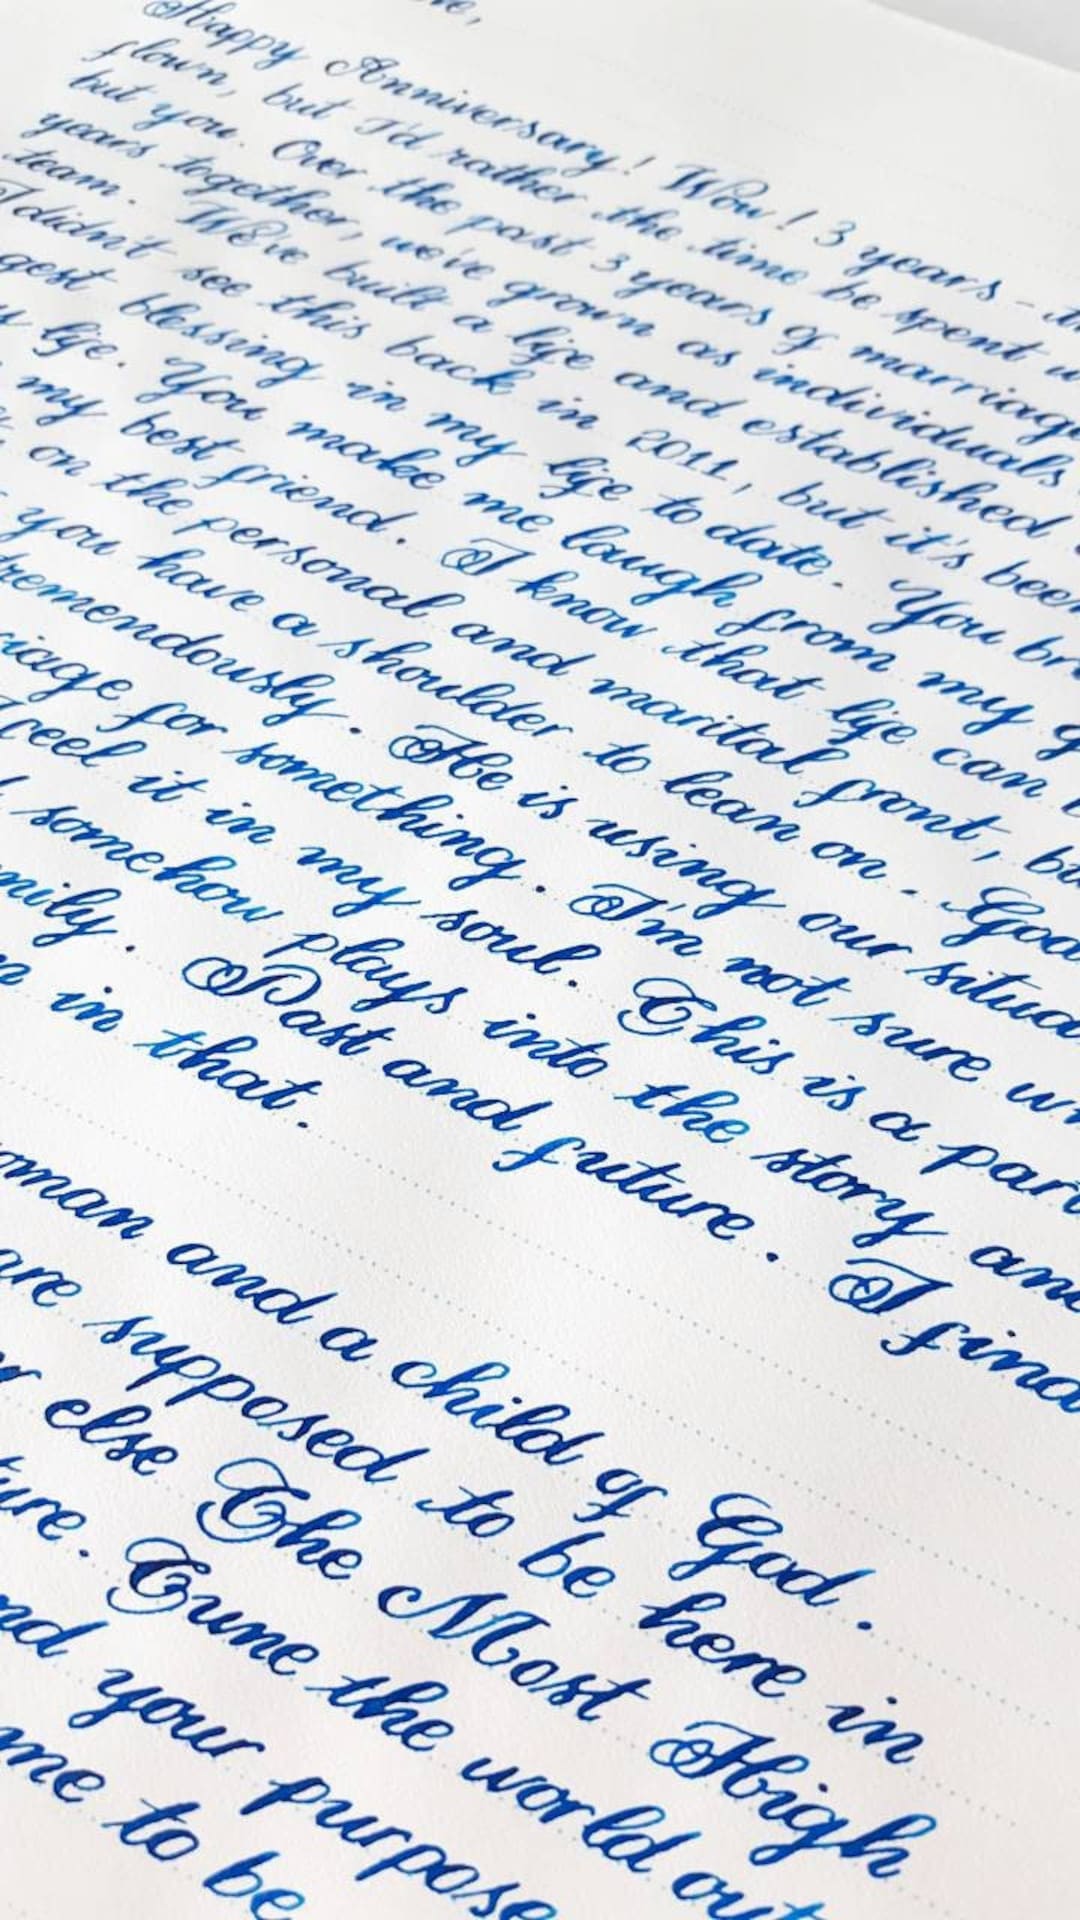 Happy Anniversary! Wow! 3 years -
flown, but I'd rather the time be spent
but you. Over the past 3 years of marriage
years together, we've grown as individuals
team. We've built a life and established
I didn't see this back in 2011, but it's been
gest blessing in my life to date. You
life. You make me laugh from my
my best friend. I know that life can
on the personal and marital front,
you have a shoulder to lean on. God
tremendously. He is using our situa
riage for something. I'm not sure
I feel it in my soul. This is a part
somehow plays into the story and
mily. Past and future. I find
in that.
oman and a child of God.
are supposed to be here in
else The Most High
ture. Tune the world out
nd your purpose
me to be